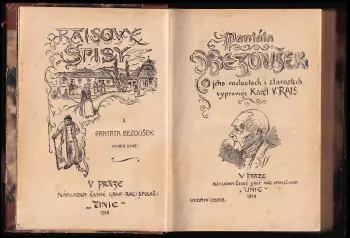 RAISOVY
SPISY
II.
PANTÁTA BEZOUŠEK
VYDÁNÍ OSMÉ.
V PRAZE
NÁKLADEM ČESKÉ GRAF. AKC. SPOLEČ.
"UNIE"
1918
Pantáta
BEZOUŠEK
O jeho radostech i starostech
vypravuje Karel V. RAIS.
V PRAZE
NÁKLADEM ČESKÉ GRAF. AKC. SPOLEČNOSTI
"UNIE"
1918
VYDÁNÍ OSMÉ.